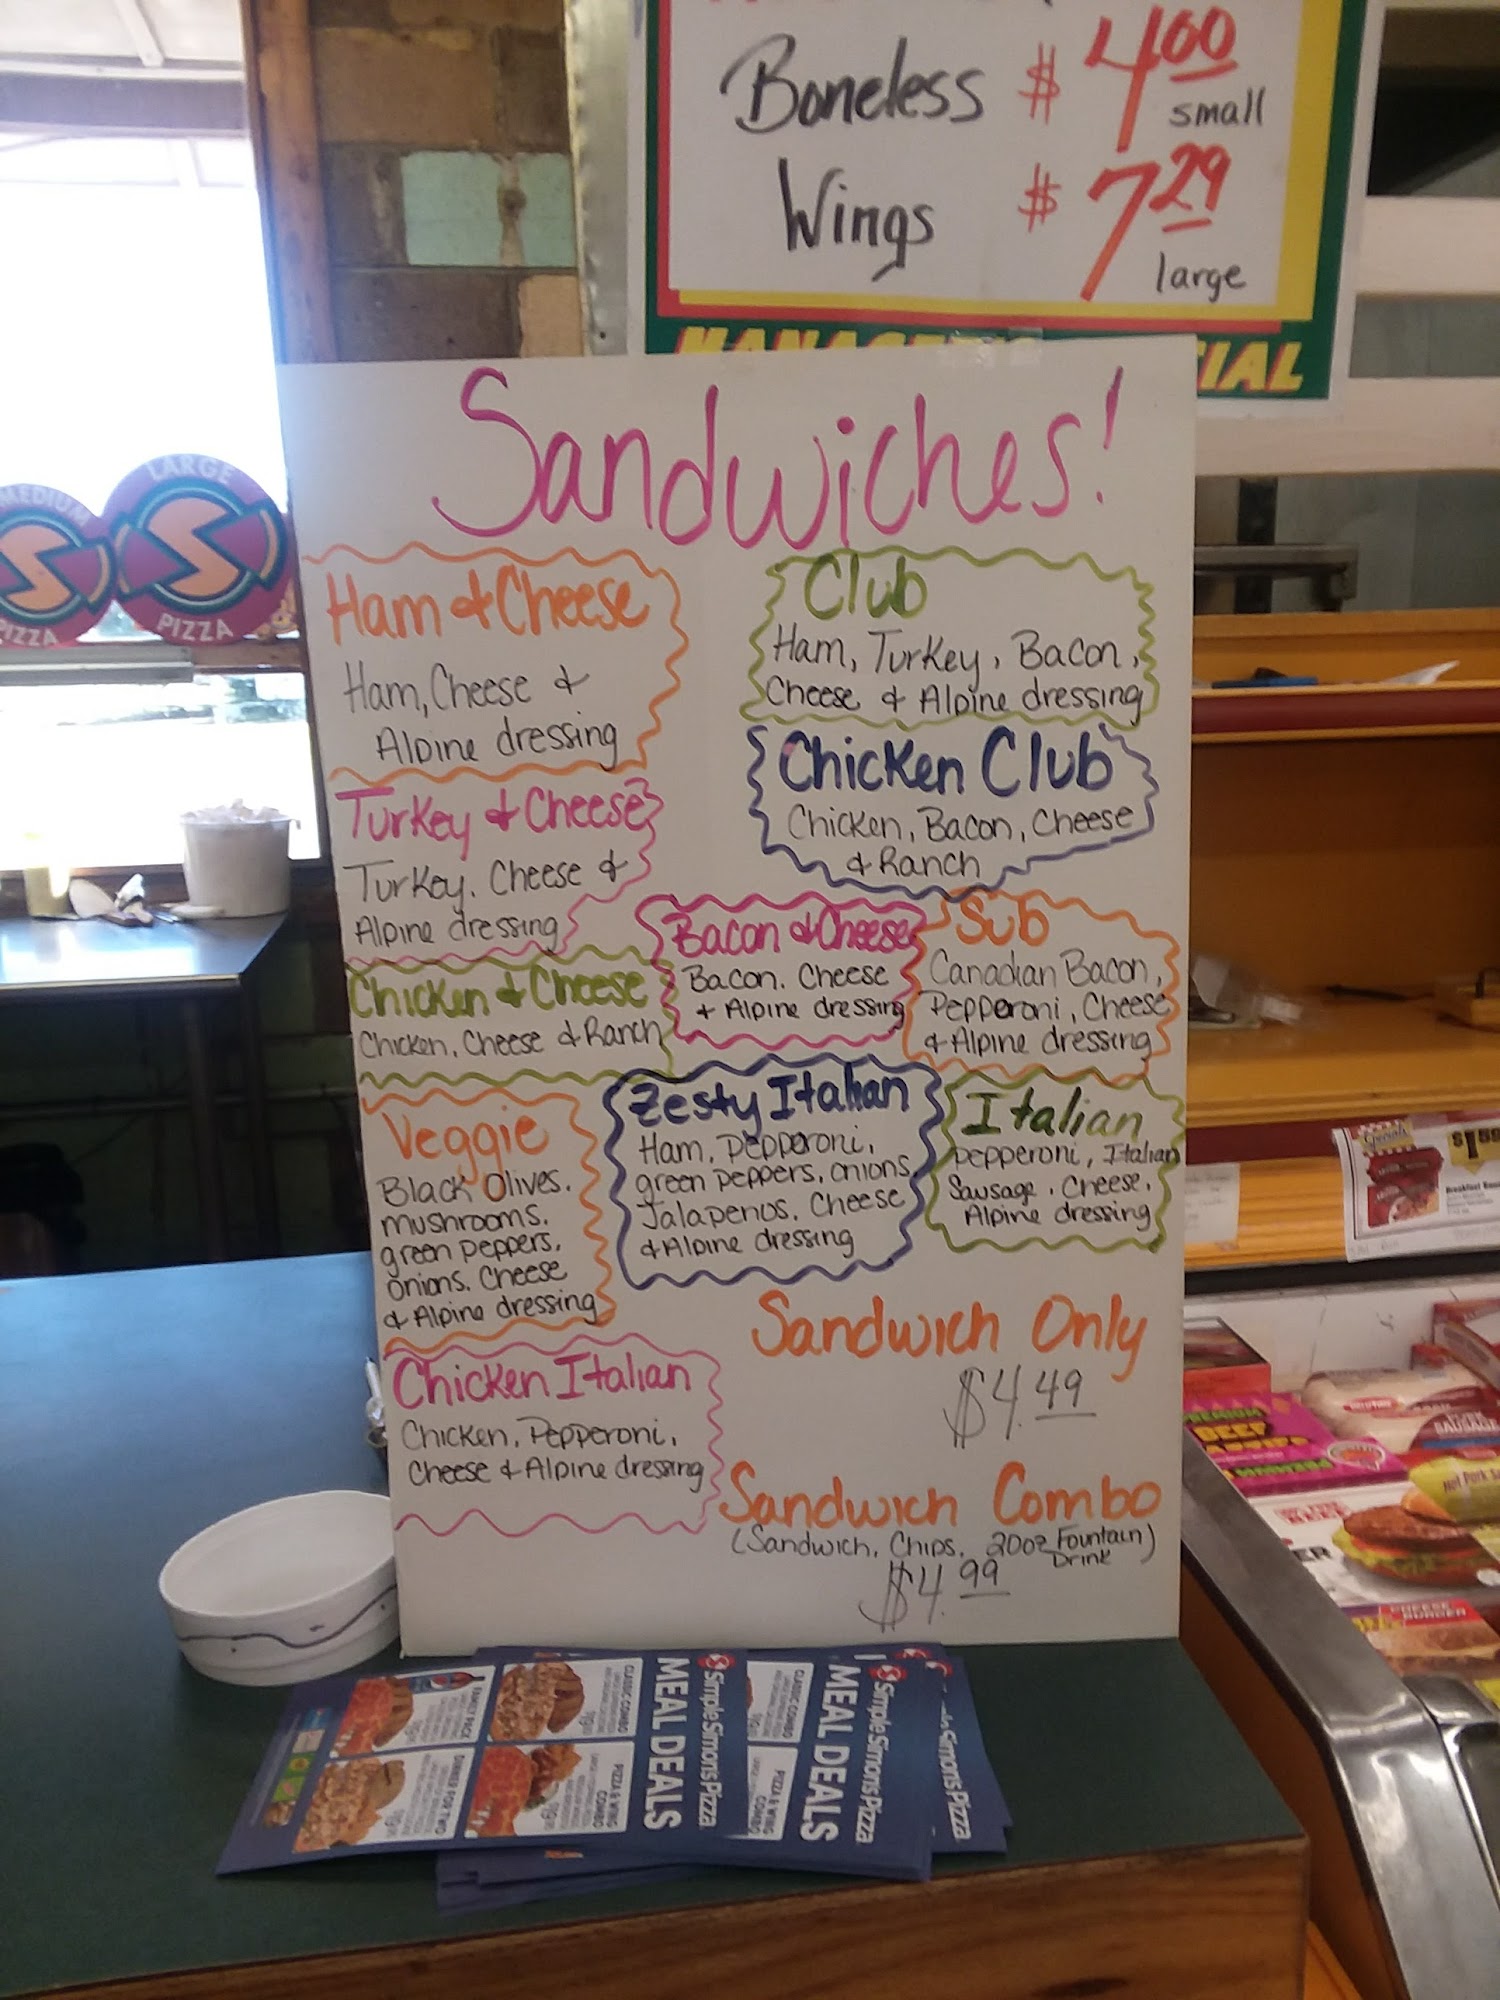 Boneless $ 4.00
small
Wings $ 7.29
large
MANAGER'S SPECIAL
Sandwiches!
Ham & Cheese
Ham, Cheese &
Alpine dressing
Turkey & Cheese
Turkey, Cheese &
Alpine dressing
Chicken & Cheese
Chicken, Cheese & Ranch
Veggie
Black Olives,
mushrooms,
green peppers,
onions, Cheese
& Alpine dressing
Chicken Italian
Chicken, Pepperoni,
Cheese & Alpine dressing
Club
Ham, Turkey, Bacon,
Cheese & Alpine dressing
Chicken Club
Chicken, Bacon, Cheese
& Ranch
Bacon & Cheese
Bacon, Cheese
+ Alpine dressing
Sub
Canadian Bacon,
Pepperoni, Cheese
& Alpine dressing
Zesty Italian
Ham, Pepperoni,
green peppers, onions,
Jalapenos, Cheese
& Alpine dressing
Italian
Pepperoni, Italian
Sausage, Cheese,
Alpine dressing
Sandwich Only
$4.49
Sandwich Combo
(Sandwich, Chips, 20oz Fountain
Drink)
$4.99
MEDIUM
PIZZA
LARGE
PIZZA
Simple Simon's Pizza
MEAL DEALS
CLASSIC COMBO
PIZZA & WING
COMBO
FAMILY PACK
DINNER FOR TWO
Simple Simon's Pizza
MEAL DEALS
CLASSIC COMBO
PIZZA & WING
COMBO
Simon's Pizza
$1.59
PREMIUM
BEEF
CHEESE
BURGER
SAUSAGE